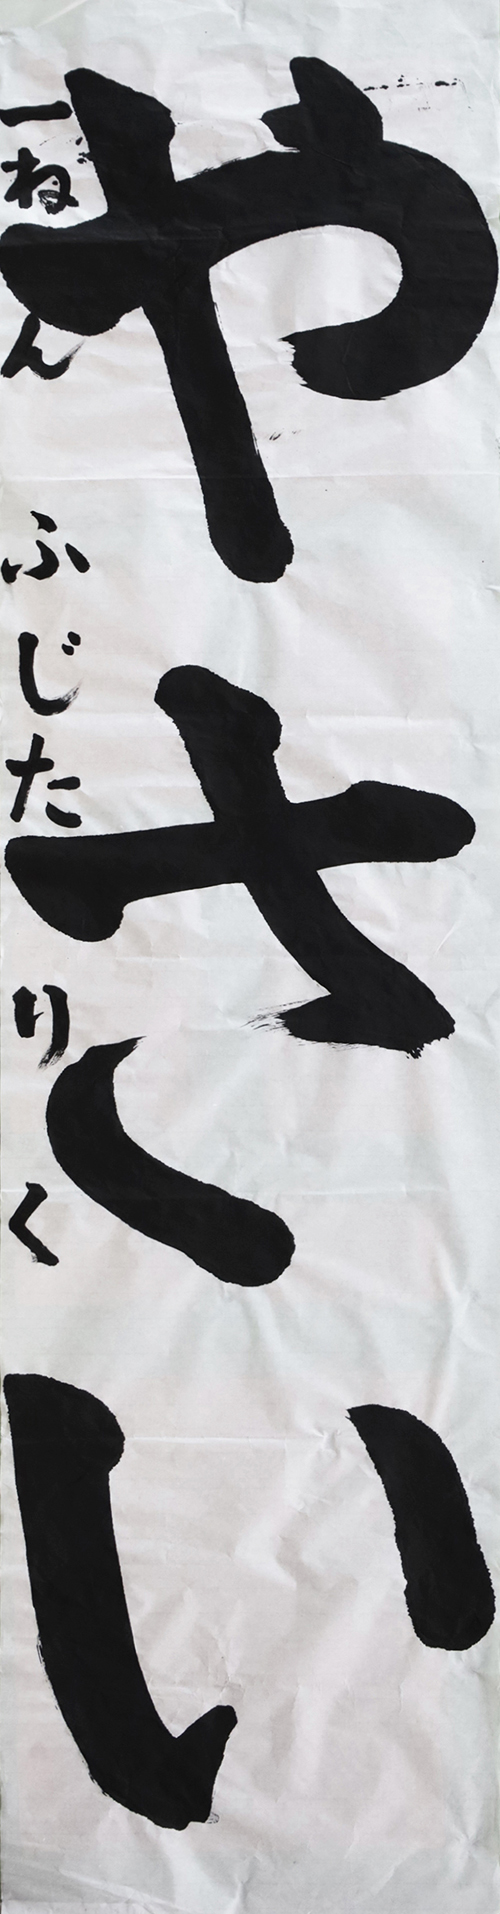 やさい
一ねん ふじた りく